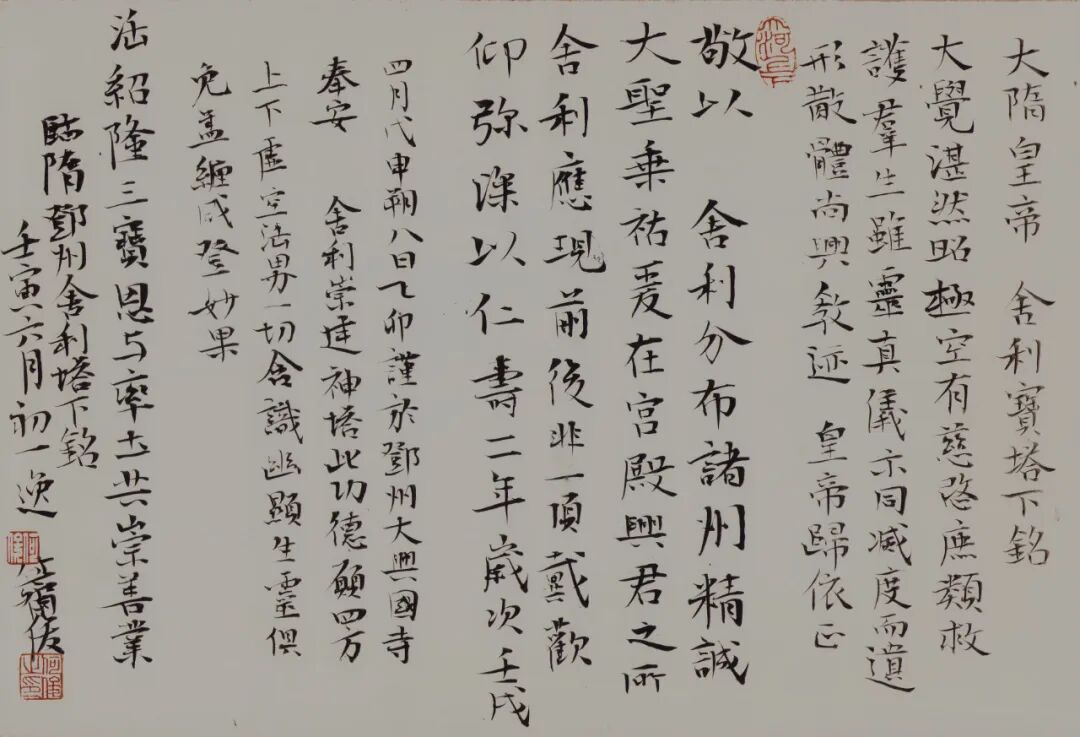 大隋皇帝 舍利寶塔下銘
大覺湛然昭極空有慈愍庶類救
護羣生雖靈真儀示同滅度而遺
形散體尚興教迹 皇帝歸依正
法紹隆三寶恩与率土共崇善業
敬以 舍利分布諸州精誠
大聖乘祐爰在宮殿興君之所
舍利應現前後非一頂戴歡
仰弥深以仁壽二年歲次壬戌
四月戊申朔八日乙卯謹於鄧州大興國寺
奉安 舍利崇建神塔此功德願四方
上下虛空法界一切含識幽顯生靈俱
免盖纏咸登妙果
臨隋鄧州舍利塔下銘
壬寅六月初一逸